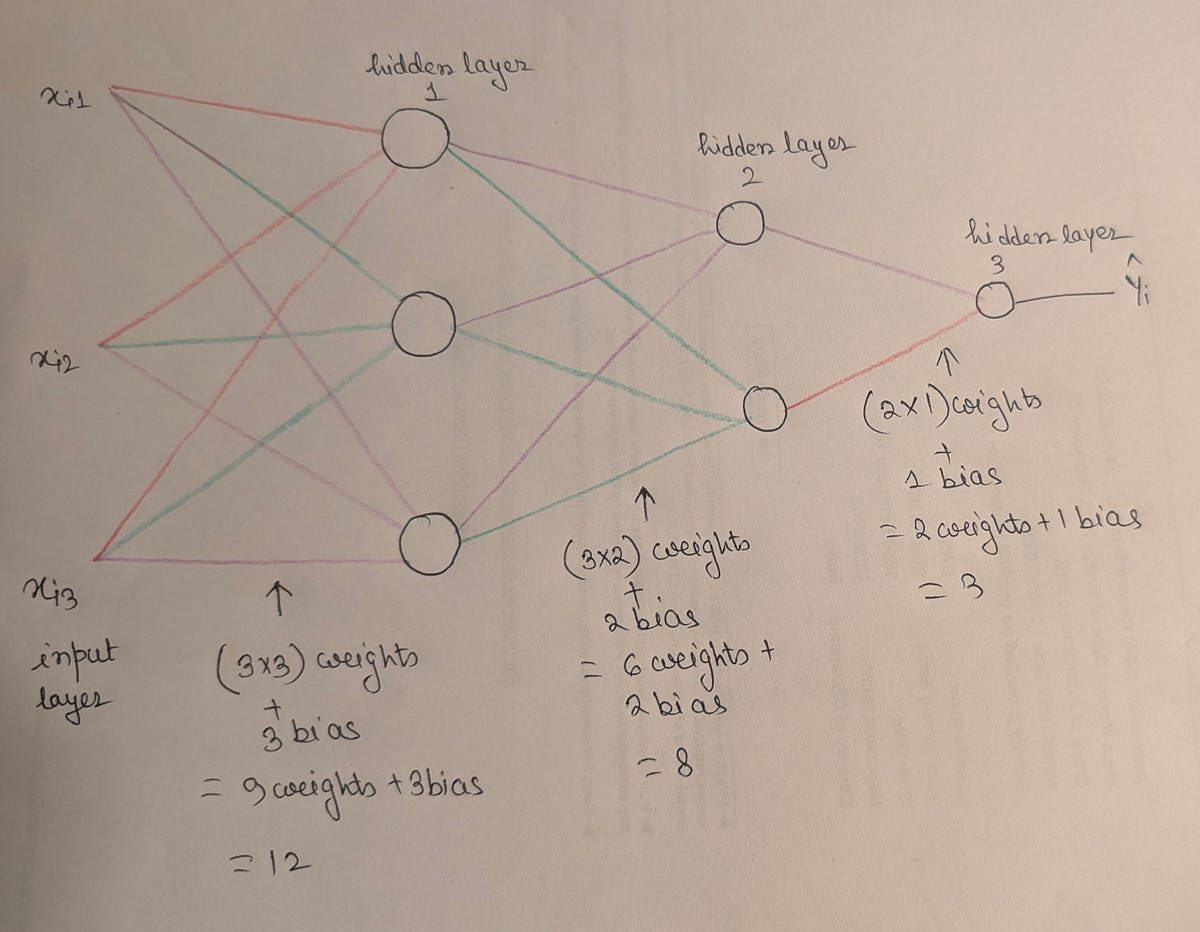 xi1
hidden layer
1
hidden layer
2
hidden layer
3
ŷi
xi2
xi3
input
layer
(3x3) weights
+
3 bias
= 9 weights + 3 bias
= 12
(3x2) weights
+
2 bias
= 6 weights +
2 bias
= 8
(2x1) weights
+
1 bias
= 2 weights + 1 bias
= 3